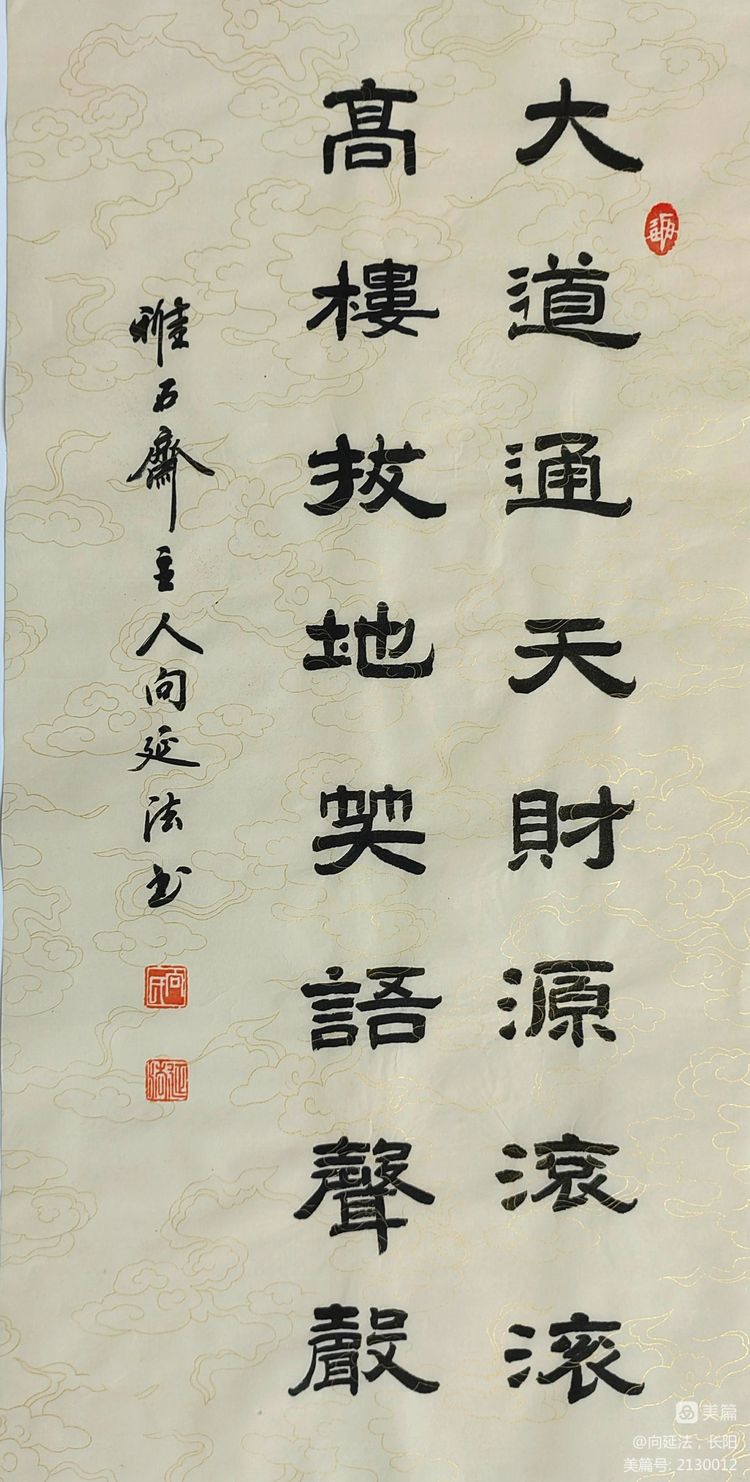 大道通天財源滾滚
高樓拔地笑語聲聲
雅石齋主人向延法书
向氏
延法
美篇
@向延法，长阳
美篇号: 2130012